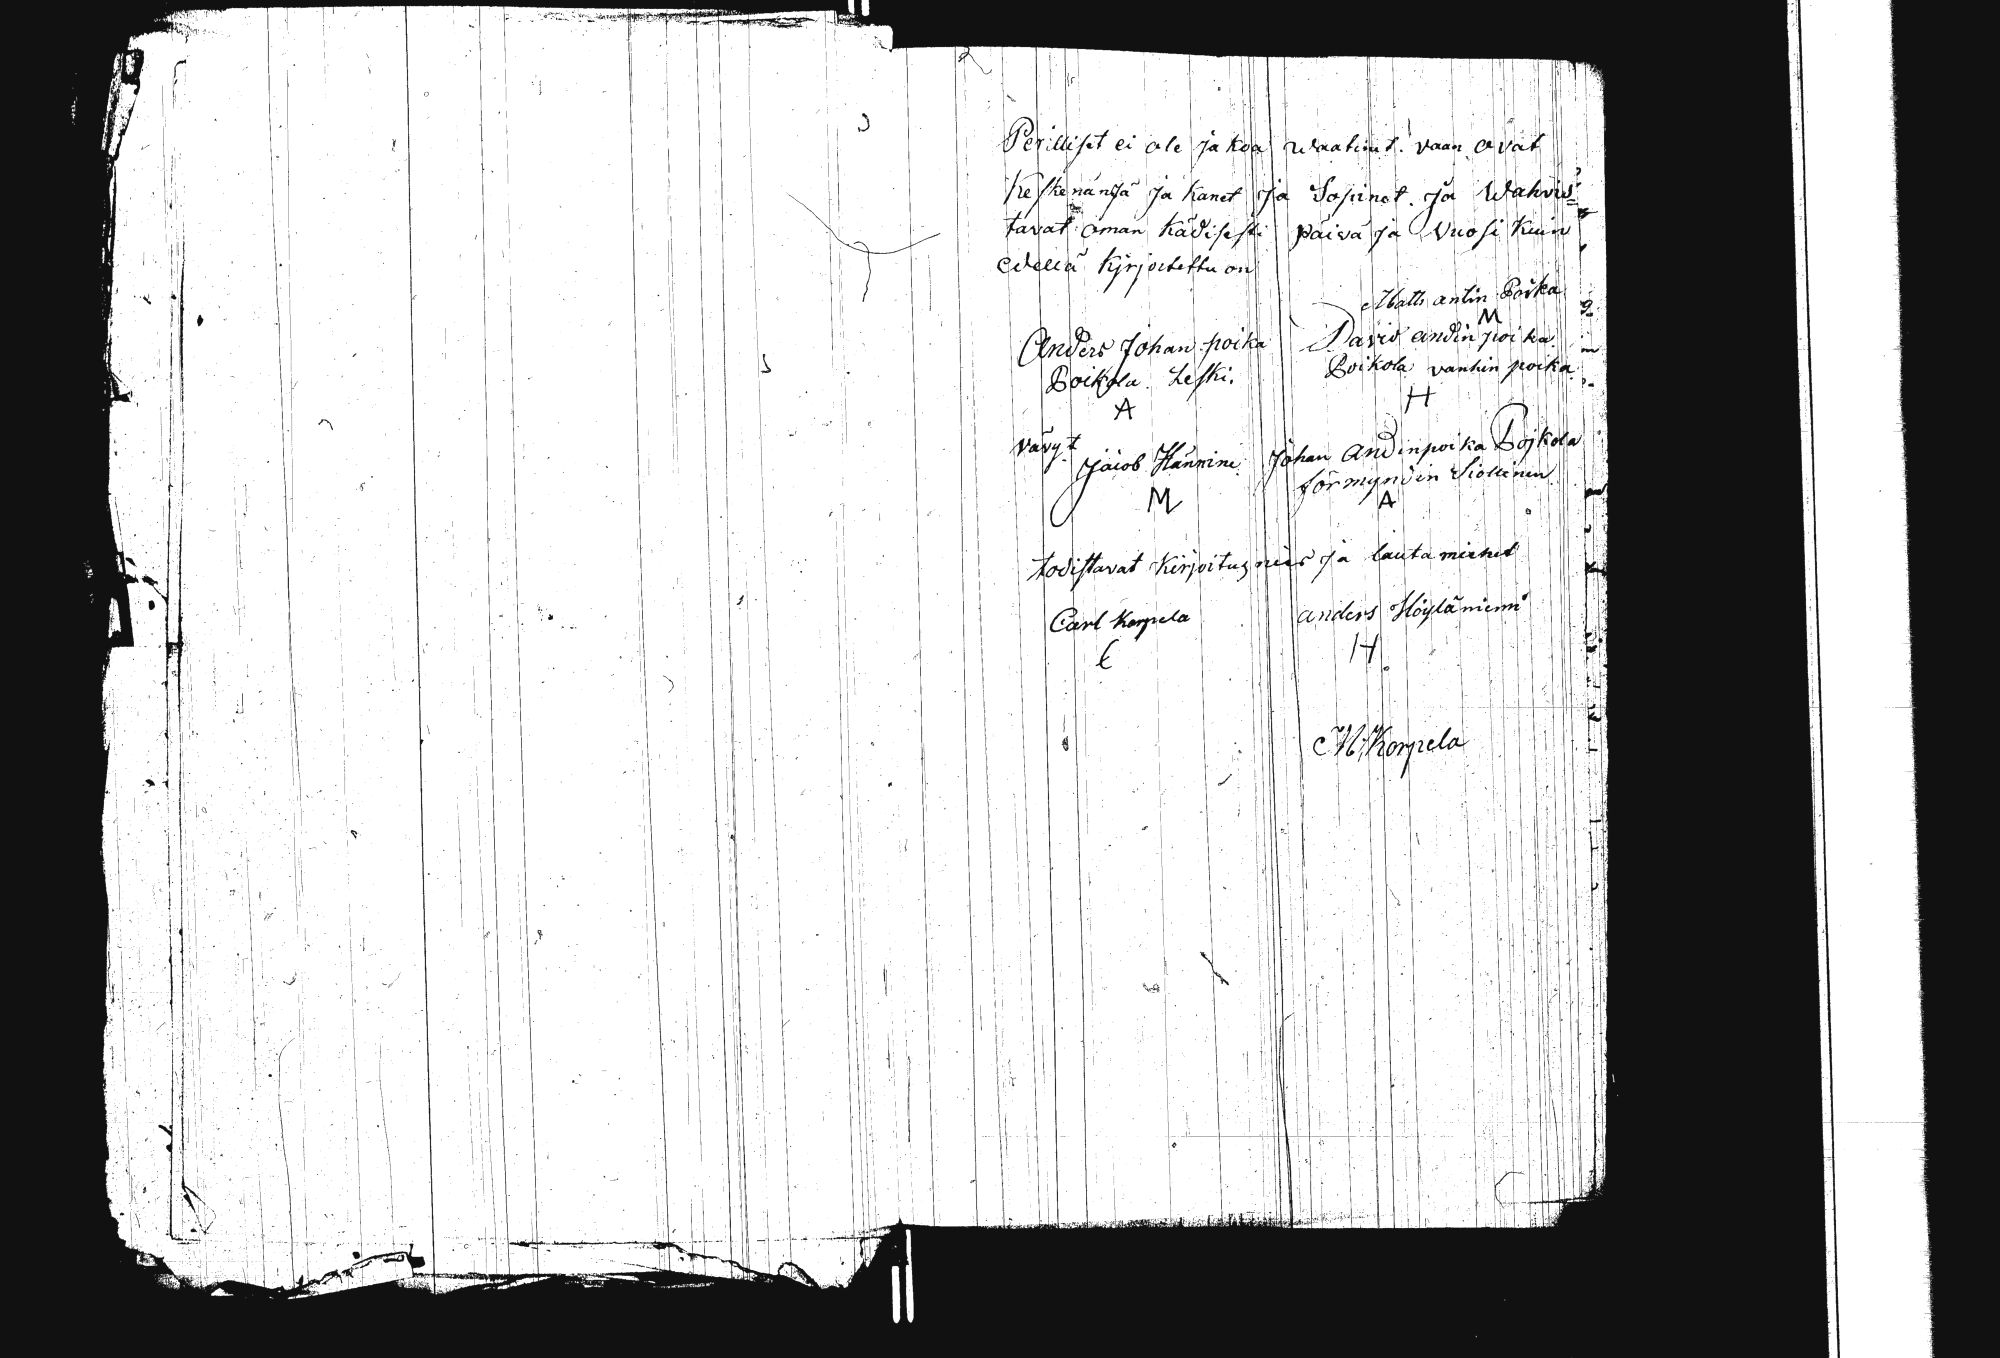 Perilliset ei ole jakoa waatinut. vaan ovat
Keskenänsä ja Kanet ja Sopinet. ja Wahvis=
tavat oman kädisesti päivä ja Vuosi Kuin
edellä Kirjoitettu on
Matts antin Poika
M
Anders Johan poika
David andin poika
Boikola Leski.
Boikola vanhin poika
A
H
vävyt
Jacob Hännine
Johan Andinpoika Bojkola
förmyndin Siollinen
M
A
todistavat Kirjoitus mies ja lautamiehet
Carl Korpela
anders Höyläniemi
C
H
M. Korpela